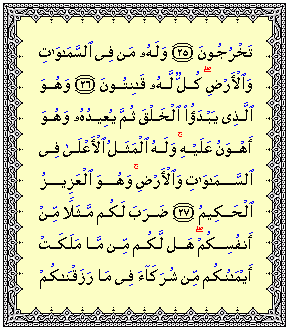 تَخۡرُجُونَ ٢٥ وَلَهُۥ مَن فِى ٱلسَّمَٰوَٰتِ
وَٱلۡأَرۡضِۖ كُلّٞ لَّهُۥ قَٰنِتُونَ ٢٦ وَهُوَ
ٱلَّذِى يَبۡدَؤُاْ ٱلۡخَلۡقَ ثُمَّ يُعِيدُهُۥ وَهُوَ
أَهۡوَنُ عَلَيۡهِۚ وَلَهُ ٱلۡمَثَلُ ٱلۡأَعۡلَىٰ فِى
ٱلسَّمَٰوَٰتِ وَٱلۡأَرۡضِۚ وَهُوَ ٱلۡعَزِيزُ
ٱلۡحَكِيمُ ٢٧ ضَرَبَ لَكُم مَّثَلٗا مِّنۡ
أَنفُسِكُمۡۖ هَل لَّكُم مِّن مَّا مَلَكَتۡ
أَيۡمَٰنُكُم مِّن شُرَكَآءَ فِى مَا رَزَقۡنَٰكُمۡ